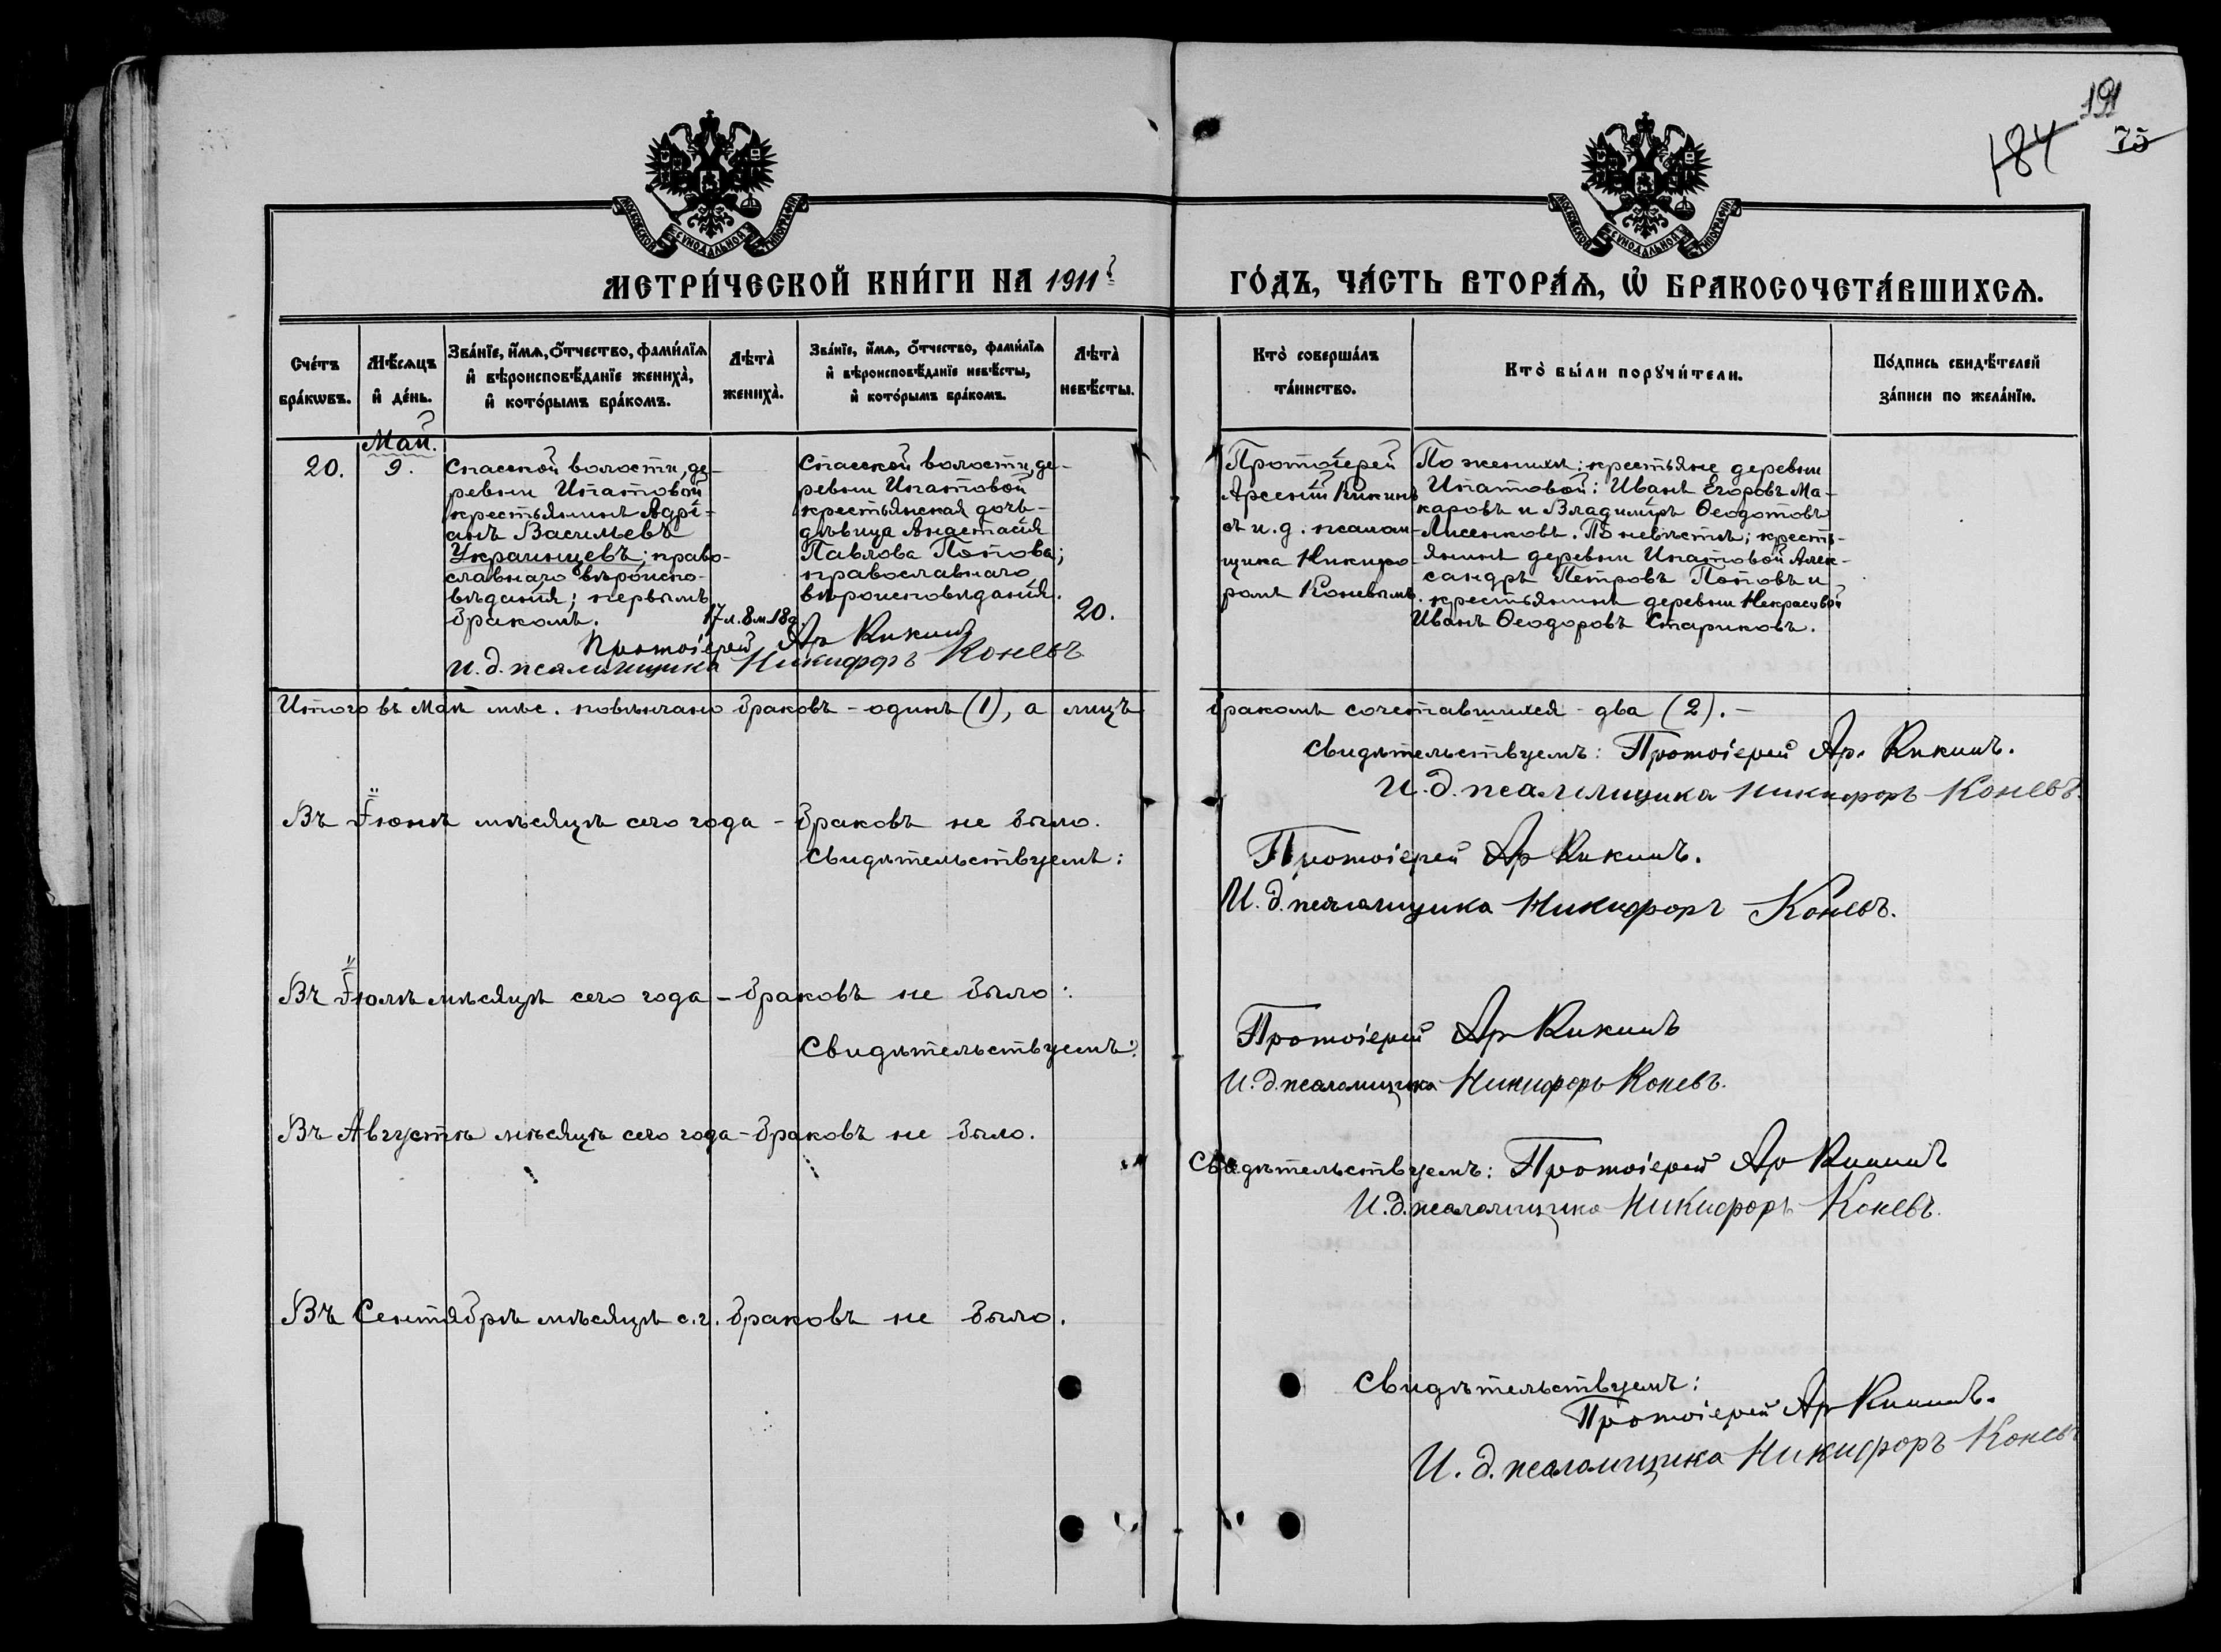 191
184
75
МОСКОВСКОЙ СѴНОДАЛЬНОЙ ТИПОГРАФІИ
МОСКОВСКОЙ СѴНОДАЛЬНОЙ ТИПОГРАФІИ
МЕТРИ́ЧЕСКОЙ КНИ́ГИ НА 1911 г
ГО́ДЪ, ЧА́СТЬ ВТОРА́Ѧ, Ѽ БРАКОСОЧЕТА́ВШИХСѦ.
Сче́тъ
бра́кѡвъ.
Мѣ́сѧцъ
и҆ де́нь.
Зва́нїе, и҆́мѧ, ѻ҆́тчество, фами́лїѧ
и҆ вѣроисповѣ́данїе жениха̀,
и҆ кото́рымъ бра́комъ.
Лѣта̀
жениха̀.
Зва́нїе, и҆́мѧ, ѻ҆́тчество, фами́лїѧ
и҆ вѣроисповѣ́данїе невѣ́сты,
и҆ кото́рымъ бра́комъ.
Лѣта̀
невѣ́сты.
Кто̀ соверша́лъ
та́инство.
Кто̀ бы́ли порꙋчи́тели.
По́дпись свидѣ́телей
за́писи по жела́нїю.
Май.
20.
9.
Спасской волости, де-
ревни Ипатовой
крестьянинъ Адрі-
анъ Васильевъ
Украинцевъ; право-
славнаго вѣроиспо-
вѣданія; первымъ
бракомъ.
17 л. 8 м. 18 д.
Спасской волости, де-
ревни Ипатовой
крестьянская дочь-
дѣвица Анастасія
Павлова Попова;
православнаго
вѣроисповѣданія.
20.
Протоіерей Ар Кикинъ
И. д. псаломщика Никифоръ Коневъ
Протоіерей
Арсеній Кикинъ
съ и. д. псалом-
щика Никифо-
ромъ Коневымъ.
По женихѣ: крестьяне деревни
Ипатовой: Иванъ Егоровъ Ма-
каровъ и Владиміръ Ѳеодотовъ
Лисенковъ. По невѣстѣ; кресть-
янинъ деревни Ипатовой Алек-
сандръ Петровъ Поповъ и
крестьянинъ деревни Некрасовой
Иванъ Ѳеодоровъ Стариковъ.
Итого въ Маѣ мѣс. повѣнчано браковъ - одинъ (1), а лицъ
бракомъ сочетавшихся - два (2). -
Свидѣтельствуемъ: Протоіерей Ар. Кикинъ.
И. д. псаломщика Никифоръ Коневъ.
Въ Іюнѣ мѣсяцѣ сего года - браковъ не было.
Свидѣтельствуемъ:
Протоіерей Ар Кикинъ.
И. д. псаломщика Никифоръ Коневъ.
Въ Іюлѣ мѣсяцѣ сего года - браковъ не было:
Свидѣтельствуемъ:
Протоіерей Ар Кикинъ
И. д. псаломщика Никифоръ Коневъ.
Въ Августѣ мѣсяцѣ сего года - браковъ не было.
Свидѣтельствуемъ: Протоіерей Ар Кикинъ
И. д. псаломщика Никифоръ Коневъ.
Въ Сентябрѣ мѣсяцѣ с. г. браковъ не было.
Свидѣтельствуемъ:
Протоіерей Ар Кикинъ.
И. д. псаломщика Никифоръ Коневъ